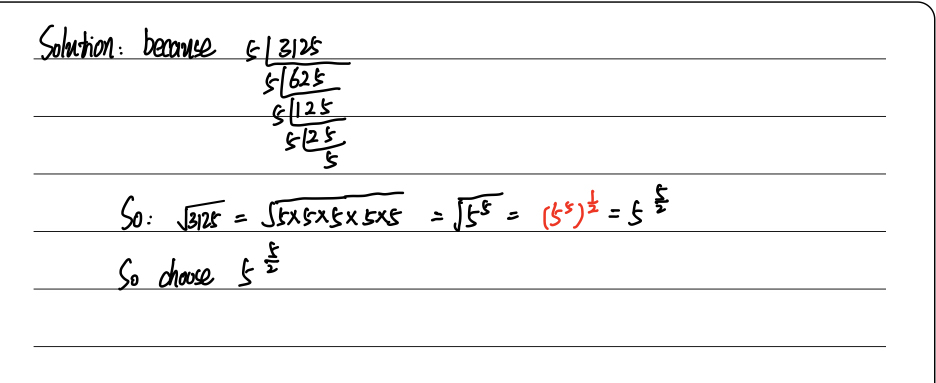 Solution: because 5|3125
5|625
5|125
5|25
5
So: √3125 = √5×5×5×5×5 = √5⁵ = (5⁵)^½ = 5^(5/2)
So choose 5^(5/2)